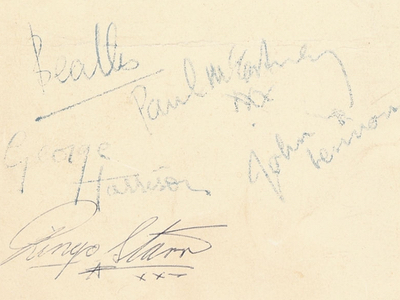 Beatles
Paul McCartney
xxx
George
Harrison
John
Lennon
Ringo Starr
xxx